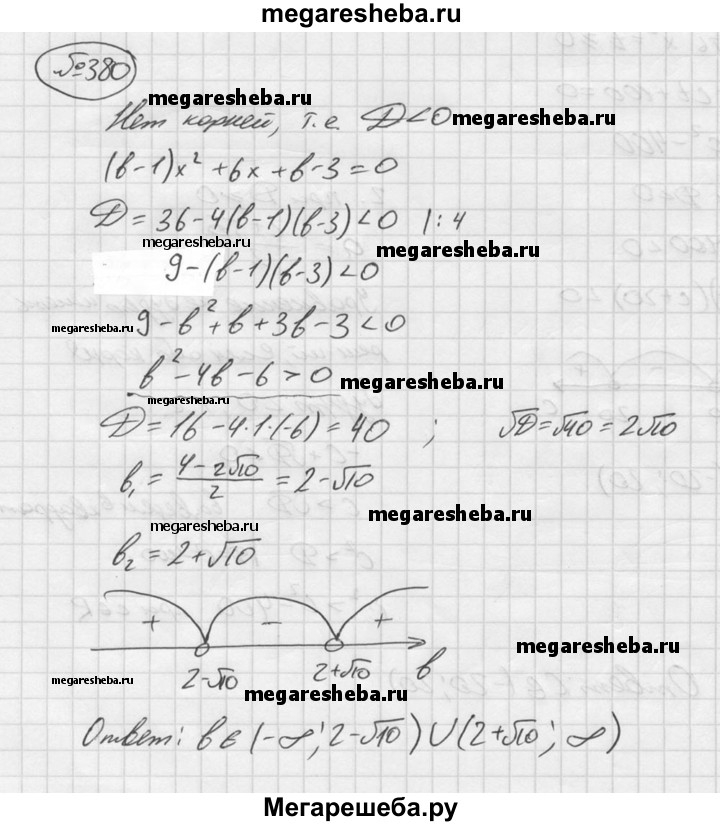 megaresheba.ru
№380
megaresheba.ru
Нет корней, т.е. D<0 megaresheba.ru
(b-1)x² + 6x + b-3 = 0
D = 36-4(b-1)(b-3)<0 |:4
megaresheba.ru megaresheba.ru
9-(b-1)(b-3)<0
megaresheba.ru 9-b²+b+3b-3<0
b²-4b-6>0 megaresheba.ru
megaresheba.ru
D = 16-4·1·(-6) = 40 ; √D=√40 = 2√10
b₁ = (4-2√10)/2 = 2-√10
megaresheba.ru
megaresheba.ru
b₂ = 2+√10
+ - +
megaresheba.ru
2-√10 2+√10 b
megaresheba.ru megaresheba.ru
Ответ: b∈(-∞; 2-√10)∪(2+√10; ∞)
Мегарешеба.ру